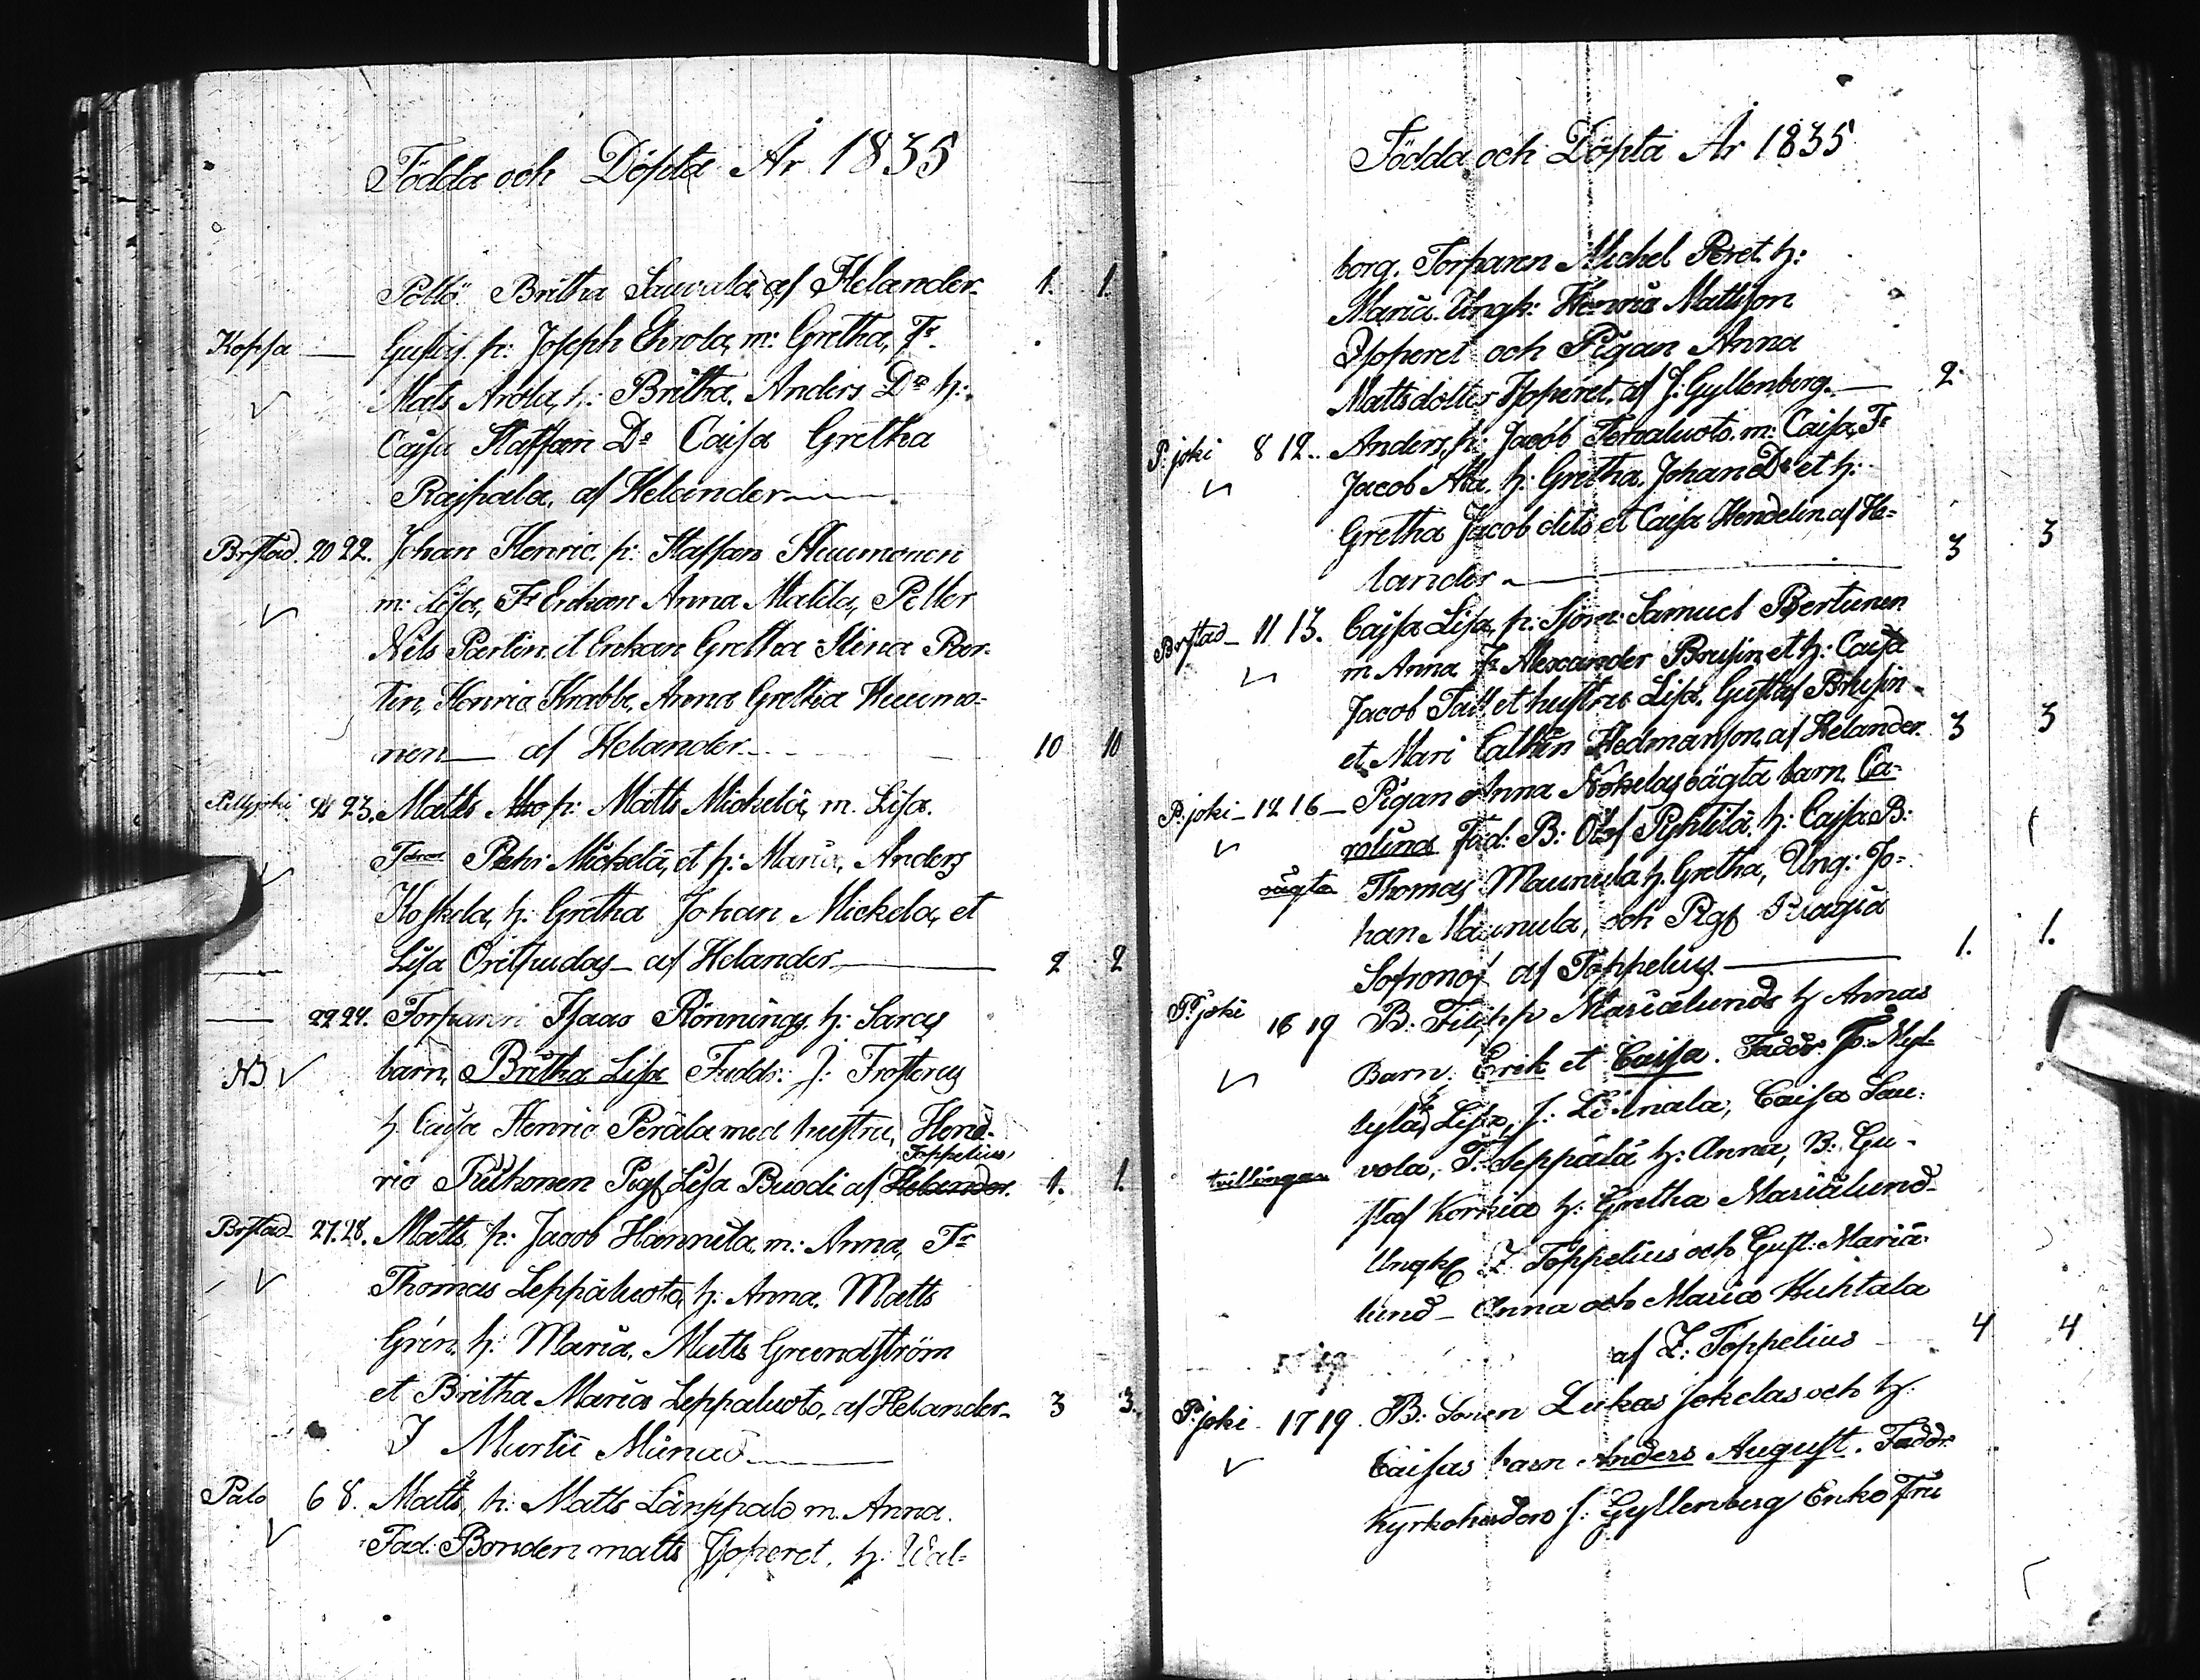 Födda och Döpta År 1835
Pöllö. Britha Sauvala, af Helander. 1. 1.
Kopsa — Gustaf. p: Joseph Ehrola, m: Gretha, Fr
Mats Arola, h: Britha. Anders Do h:
Cajsa Staffan Do Caisa Gretha
Raispala, af Helander
Brstad. 20 22. Johan Henric. p: Staffan Huumonen
m: Lisa, Fr Enkan Anna Matila, Petter
Nils Partin et Enkan Gretha Stina Par-
tin, Henric Krabbe, Anna Gretha Huumo-
nen — af Helander 10 10
23. Matts p: Matts Mickelä, m. Lisa.
Pehr Mickelä, et h: Maria, Anders
Koskela, h: Gretha Johan Mickela, et
Lisa af Helander 2 2
22 24. Torparen Isaac Rönnings, h: Saras
NB barn, Britha Lisa Fadd: J: Frosterus
h. Caisa Henric Perälä med hustru, Hend-
Toppelius,
ric Pulkonen Pig Lisa Buodi af Helander. 1. 1.
Brstad 27. 28. Matts, p: Jacob Hannila, m: Anna, Fr
Thomas Leppäluoto, h: Anna. Matts
Grén, h: Maria, Matts Grundström
et Britha Maria Leppaluoto, af Helander 3 3.
I Martii Månad
Palo 6 8. Matts, p: Matts Lämppalo m. Anna.
Fad: Bonden matts Isoperet, h: Wal-
Födda och Döpta År 1835
borg. Torparen Michel Peret. h:
Maria. Ungk: Henric Mattsson
Isoperet och Pigan Anna
Mattsdotter Isoperet. af J: Gyllenberg. 2
P: joki 8 12. Anders, p: Jacob Tervaluoto. m: Caisa, Fr
Jacob h: Gretha. Johan Do et h:
Gretha Jacob dito et Caisa Hendelin. af He-
lander 3 3
Brstad 11 13. Cajsa Lisa, p: Sjom: Samuel Bertunen
m Anna Fr Alexander Brusin et h: Caisa
Jacob Tall et hustru Lisa. Gustaf Brusin
et Mari Cathrin Hedmanson, af Helander. 3 3
P: joki 12 16 Pigan Anna Nökelas oägta barn, Ca-
rolina Fad: B: Olof Pyhtilä. h: Cajsa B:
oägta Thomas Maunula h. Gretha, Ung: Jo-
han Maunula, och Pig
Sofronof af Toppelius 1. 1.
P: joki 16 19 B: Filipp Marialunds h Annas
Barn: Erik et Caisa. Faddr: Myl-
lylä, Lisa, J: Liinala, Caisa Sau-
tvillingar vola, T: Seppälä h: Anna, B: Gu-
staf Korkia h: Gretha Marialund
Ungk Z Toppelius och Gust: Maria-
lund — Anna och Maria Huhtala
af Z: Toppelius 4 4
P: joki 17 19. B: Sonen Lukas Jokelas och h:
Caisas barn Anders August. Faddr:
Kyrkoherden J: Gyllenberg Enke Fru